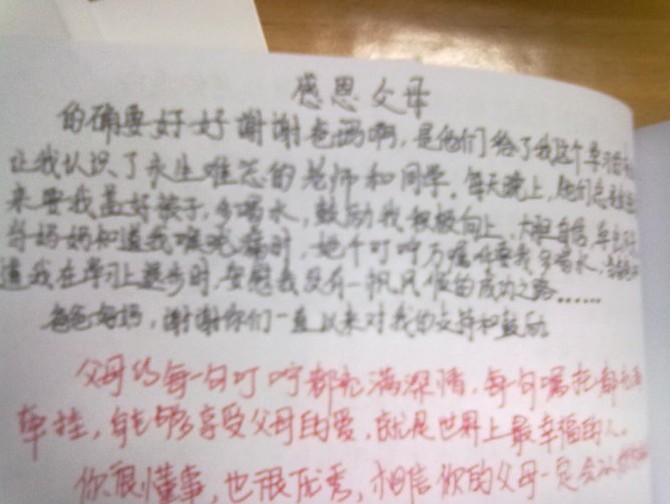 感恩父母
的确要好好谢谢爸妈啊，是他们给了我这个学习
让我认识了永生难忘的老师和同学。每天晚上，他们总
来要我盖好被子，多喝水，鼓励我积极向上、大胆自信
当妈妈知道我喉咙痛时，她千叮咛万嘱咐要我多喝水，
道我在学习上退步时，安慰我没有一帆风顺的成功之路……
爸爸妈妈，谢谢你们一直以来对我的支持和鼓励
父母的每一句叮咛都充满深情，每句嘱托都
牵挂，能够享受父母的爱，就是世界上最幸福的人。
你很懂事，也很优秀，相信你的父母一定会